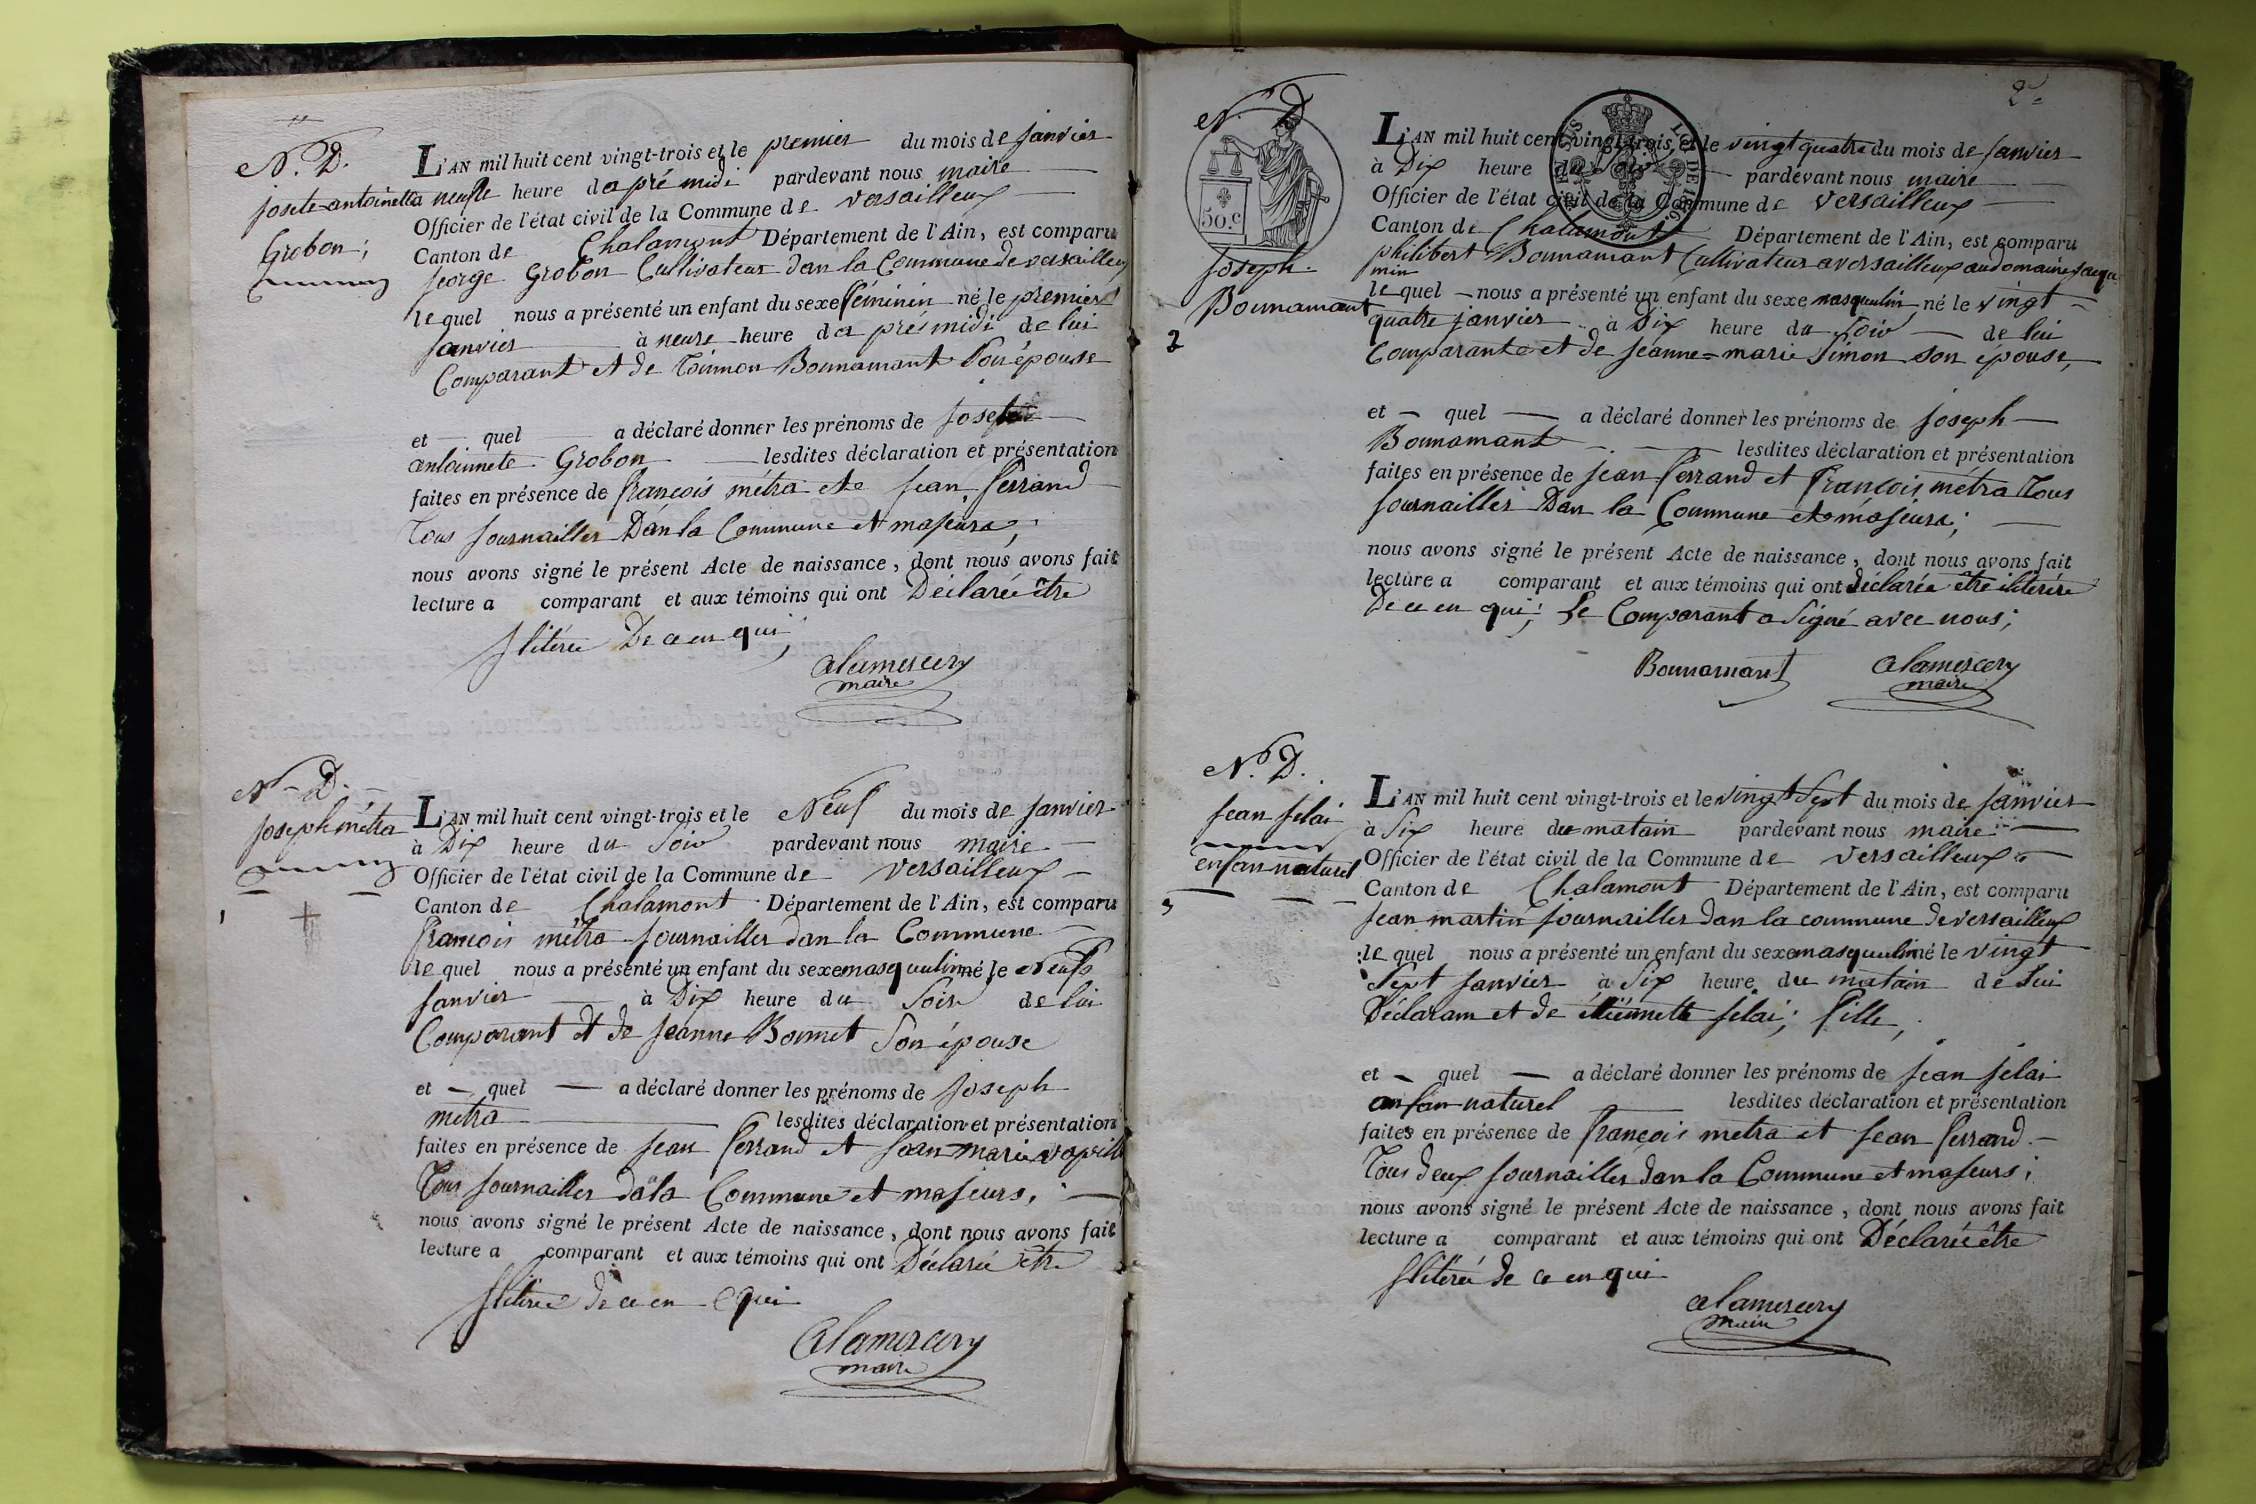 N. D.
josete-antoinetta
Grobon;
L'AN mil huit cent vingt-trois et le premier du mois de janvier
à neufe heure da pré midi pardevant nous maire
Officier de l'état civil de la Commune de versailleux
Canton de Chalamont Département de l'Ain, est comparu
jeorge Grobon Cultivateur dan la Commune de versailleux
le quel nous a présenté un enfant du sexe féminin né le premier
janvier à neuve heure da près midi de lui
Comparant et de Toinnon Bonnamant son épouse
et quel a déclaré donner les prénoms de josete
antoinnete Grobon lesdites déclaration et présentation
faites en présence de françois métra et jean ferrand
Tous journaillier Dan la Commune et majeurs;
nous avons signé le présent Acte de naissance, dont nous avons fait
lecture a comparant et aux témoins qui ont Déclareé être
jliterée De ce en qui;
alamercery
maire
N. D.
joseph métra
1
L'AN mil huit cent vingt-trois et le Neuf du mois de janvier
à Dix heure du Soir pardevant nous maire
Officier de l'état civil de la Commune de versailleux
Canton de Chalamont Département de l'Ain, est comparu
francois métra journaillier dan la Commune
le quel nous a présenté un enfant du sexe masquulin né le Neufs
janvier à Dix heure du Soir de lui
Comparant et de jeanne Bonnet Son épouse
et quel a déclaré donner les prénoms de joseph
metra lesdites déclaration et présentation
faites en présence de jean ferrand et jean marie
Tous journaillier dala Commune et majeurs.
nous avons signé le présent Acte de naissance, dont nous avons fait
lecture a comparant et aux témoins qui ont Déclareé être
jliterée de ce en qui
alamercery
maire
2e
N. D
5o.c
joseph.
Bonnamant
2
LOI DE
L'AN mil huit cent vingt-trois et le vingt quatre du mois de janvier
à Dix heure du soir pardevant nous maire
Officier de l'état civil de la Commune de versailleux
Canton de Chalamont Département de l'Ain, est comparu
philibert Bonnamant Cultivateur a versailleux au domaine jacqu
min
le quel nous a présenté un enfant du sexe masquulin né le vingt
quatre janvier à Dix heure du Soir de lui
Comparant et de jeanne=marie Simon son epouse,
et quel a déclaré donner les prénoms de joseph
Bonnamant lesdites déclaration et présentation
faites en présence de jean ferrand et François métra Tous
journaillier Dan la Commune et majeurs;
nous avons signé le présent Acte de naissance, dont nous avons fait
lecture a comparant et aux témoins qui ont déclarée être iliterére
De ce en qui; Le Comparant a Signé avec nous;
Bonnamant alamercery
maire
N.o D.
jean jelai
enfan naturel
3
L'AN mil huit cent vingt-trois et le vingt Sept du mois de janvier
à Six heure du matain pardevant nous maire
Officier de l'état civil de la Commune de versailleux
Canton de Chalamont Département de l'Ain, est comparu
jean martin journaillier dan la commune de versailleux
le quel nous a présenté un enfant du sexe masquulin né le vingt
Sept janvier à Six heure du matain de Lui
Déclaram et de étiennette jelai; fille,
et quel a déclaré donner les prénoms de jean jelai
anfan naturel lesdites déclaration et présentation
faites en présence de françois metra et jean ferrand.
Tous deux journaillier dan la Commune et majeurs;
nous avons signé le présent Acte de naissance, dont nous avons fait
lecture a comparant et aux témoins qui ont Déclareé être
jliterée de ce en qui
alamercery
maire